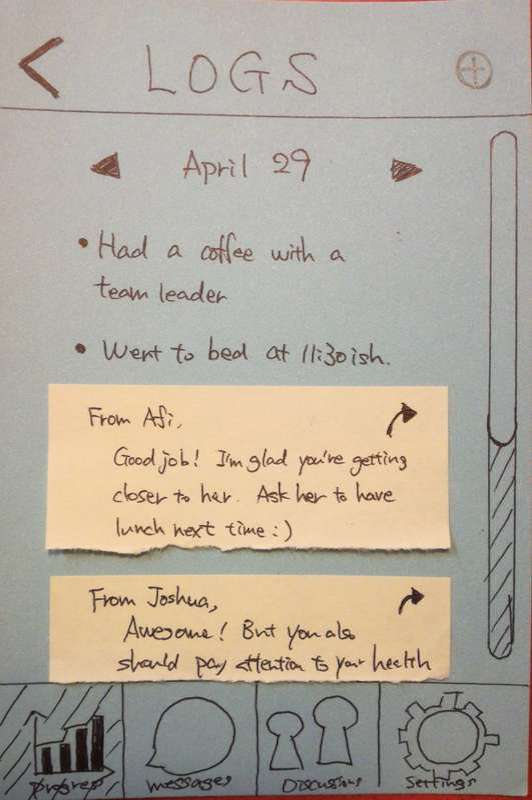 LOGS
April 29
• Had a coffee with a
team leader
• Went to bed at 11:30ish.
From Afi,
Good job! I'm glad you're getting
closer to her. Ask her to have
lunch next time :)
From Joshua,
Awesome! But you also
should pay attention to your health
progress
messages
Discussions
settings